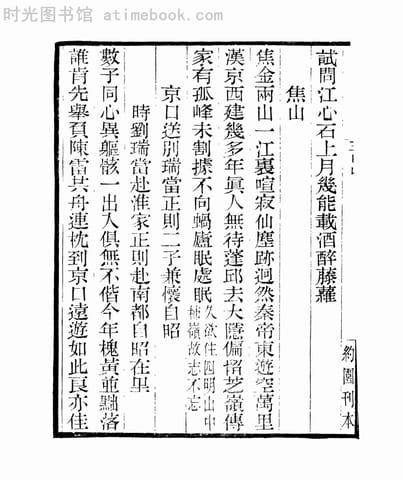 时光书馆 atimebook.com
試問江心石上月幾能載酒醉藤蘿
焦山
焦金兩山一江裏喧寂仙塵跡迥然秦帝東遊空萬里
漢京西建幾多年眞人無待蓬邱去大隱偏招芝嶺傳
家有孤峰未割據不向蝸廬眠處眠久欲住四明山中
嶺故志不忘
京口送別瑞當正則二子兼懷自昭
時劉瑞當赴淮家正則赴南都自昭在里
數子同心異軀骸一出入俱無不偕今年槐黃並黜落
誰肯先舉負陳雷共舟連枕到京口遠遊如此良亦佳
約園刊本